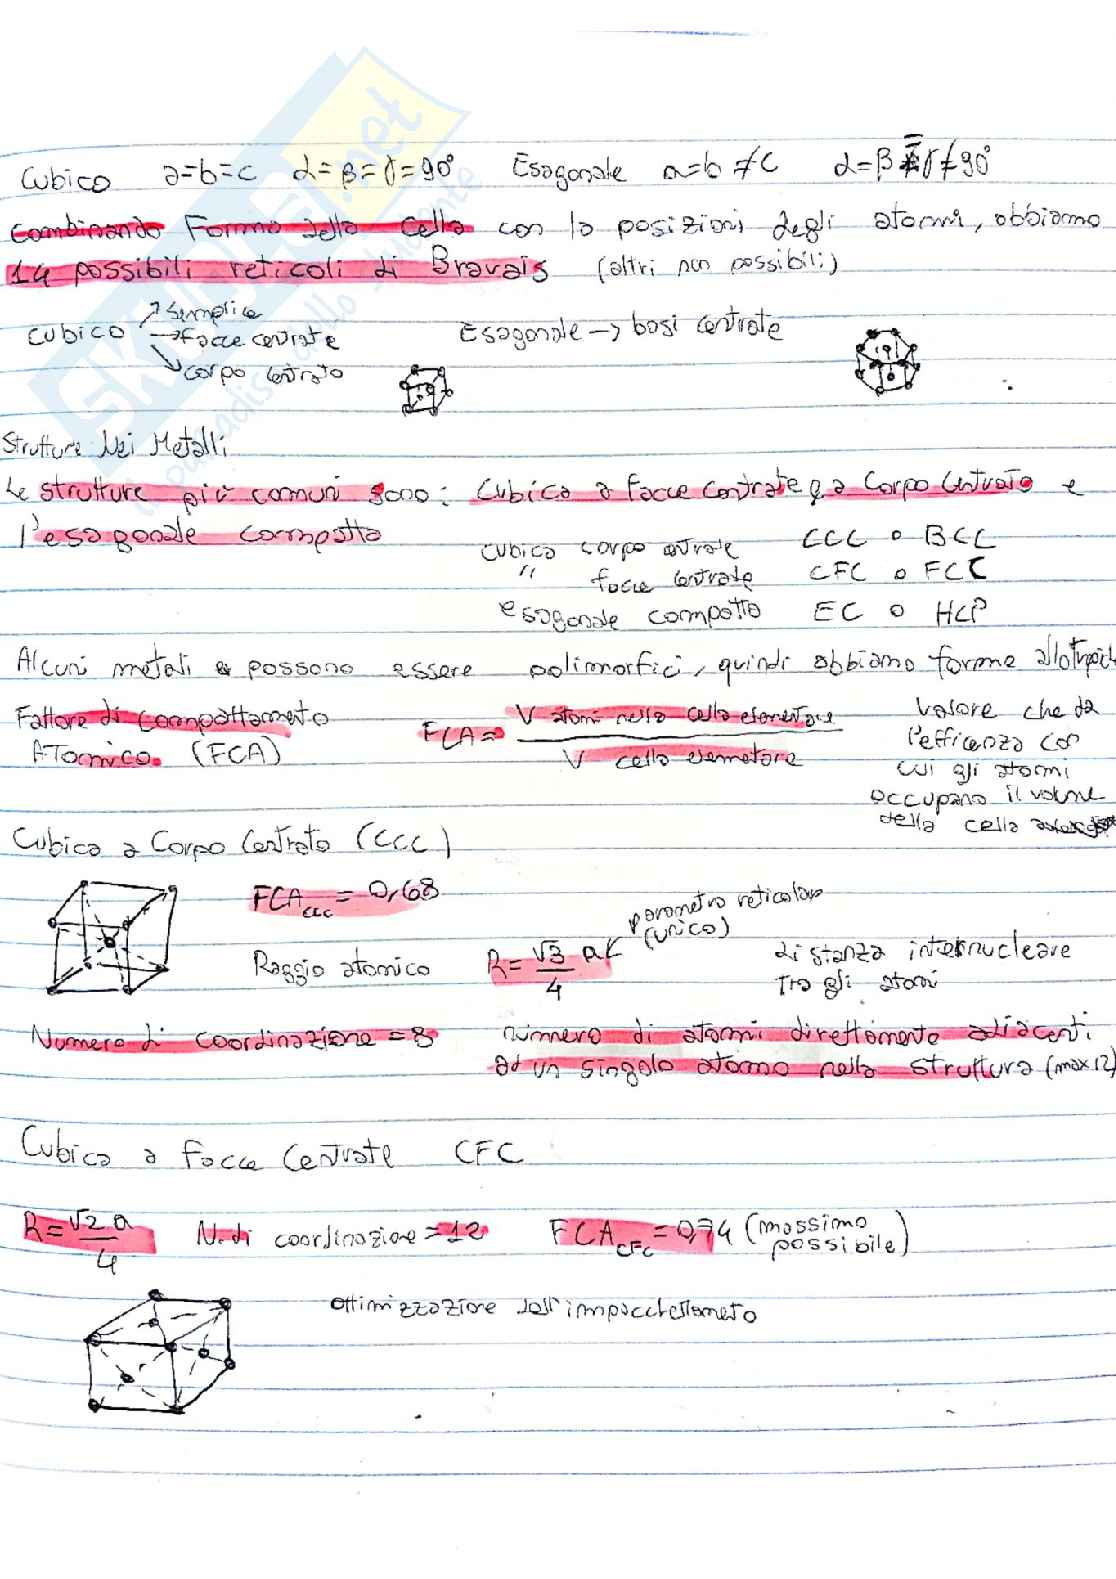 Cubico a=b=c α=β=γ=90° Esagonale a=b≠c α=β≠γ≠90°
combinando Forma della Cella con la posizioni degli atomi, abbiamo
14 possibili reticoli di Bravais (altri non possibili)
Cubico ↗ Semplice
→ Facce centrate
↘ corpo centrato
Esagonale → basi centrate
Strutture Nei Metalli
Le strutture più comuni sono: Cubica a facce centrate e a Corpo Centrato e
l'esagonale compatta
cubica corpo centrate CCC o BCC
" facce centrate CFC o FCC
esagonale compatto EC o HCP
Alcuni metali possono essere polimorfici, quindi abbiamo forme allotropiche
Fattore di compattamento
ATomico. (FCA)
FCA = V atomi nella cella elementare / V cella elemetare
valore che da
l'efficenza con
cui gli atomi
occupano il volume
della cella
Cubica a Corpo Centrato (CCC)
FCA CCC = 0,68
Raggio atomico R = √3/4 a
parametro reticolare
(unico)
distanza internucleare
tra gli atomi
Numero di coordinazione = 8
numero di atomi direttamente adiacenti
ad un singolo atomo nella struttura (max 12)
Cubica a facce Centrate CFC
R = √2 a/4 N. di coordinazione = 12 FCA CFC = 0,74 (massimo
possibile)
ottimizzazione dell'impacchettameto
SKUOLA.net